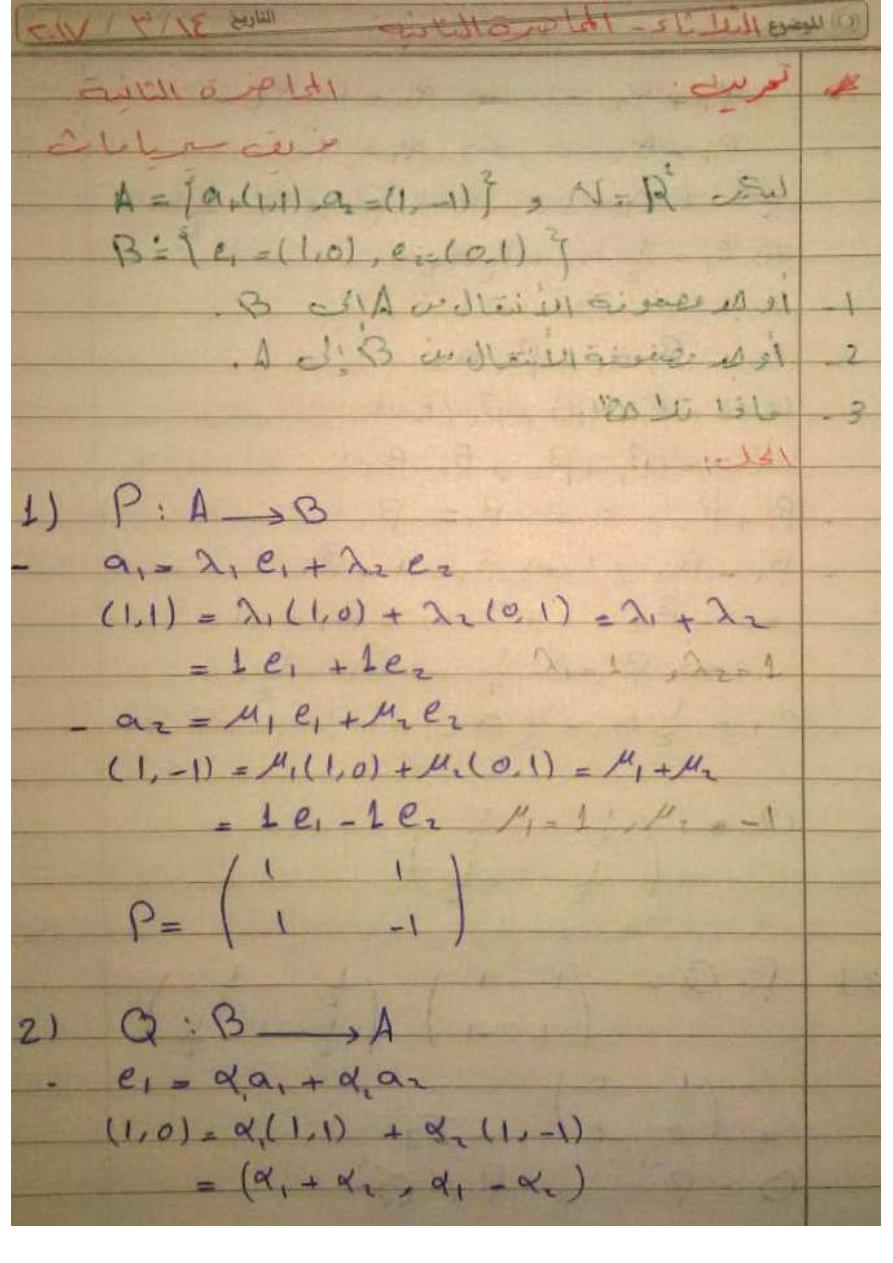 الموضوع الثلاثاء - المحاضرة الثانية التاريخ ٢٠١٧ / ٣ / ١٤
تمرين: المحاضرة الثانية
ليكن V = R² و A = {a₁(1,1), a₂=(1,-1)}
B = {e₁=(1,0), e₂=(0,1)}
1- أوجد مصفوفة الأنتقال من A إلى B.
2- أوجد مصفوفة الأنتقال من B إلى A.
3- ماذا تلاحظ
الحل:
1) P : A → B
- a₁ = λ₁ e₁ + λ₂ e₂
(1,1) = λ₁(1,0) + λ₂(0,1) = λ₁ + λ₂
= 1 e₁ + 1 e₂ λ₁=1 , λ₂=1
- a₂ = μ₁ e₁ + μ₂ e₂
(1,-1) = μ₁(1,0) + μ₂(0,1) = μ₁ + μ₂
= 1 e₁ - 1 e₂ μ₁=1 , μ₂ = -1
1 1
P =
1 -1
2) Q : B → A
- e₁ = α₁a₁ + α₂a₂
(1,0) = α₁(1,1) + α₂(1,-1)
= (α₁ + α₂ , α₁ - α₂)